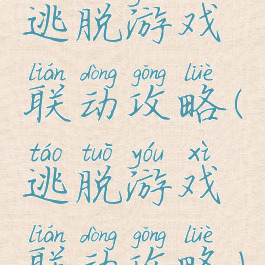 逃脱游戏
lián dòng gōng lüè
联动攻略(
táo tuō yóu xì
逃脱游戏
lián dòng gōng lüè
联动攻略)